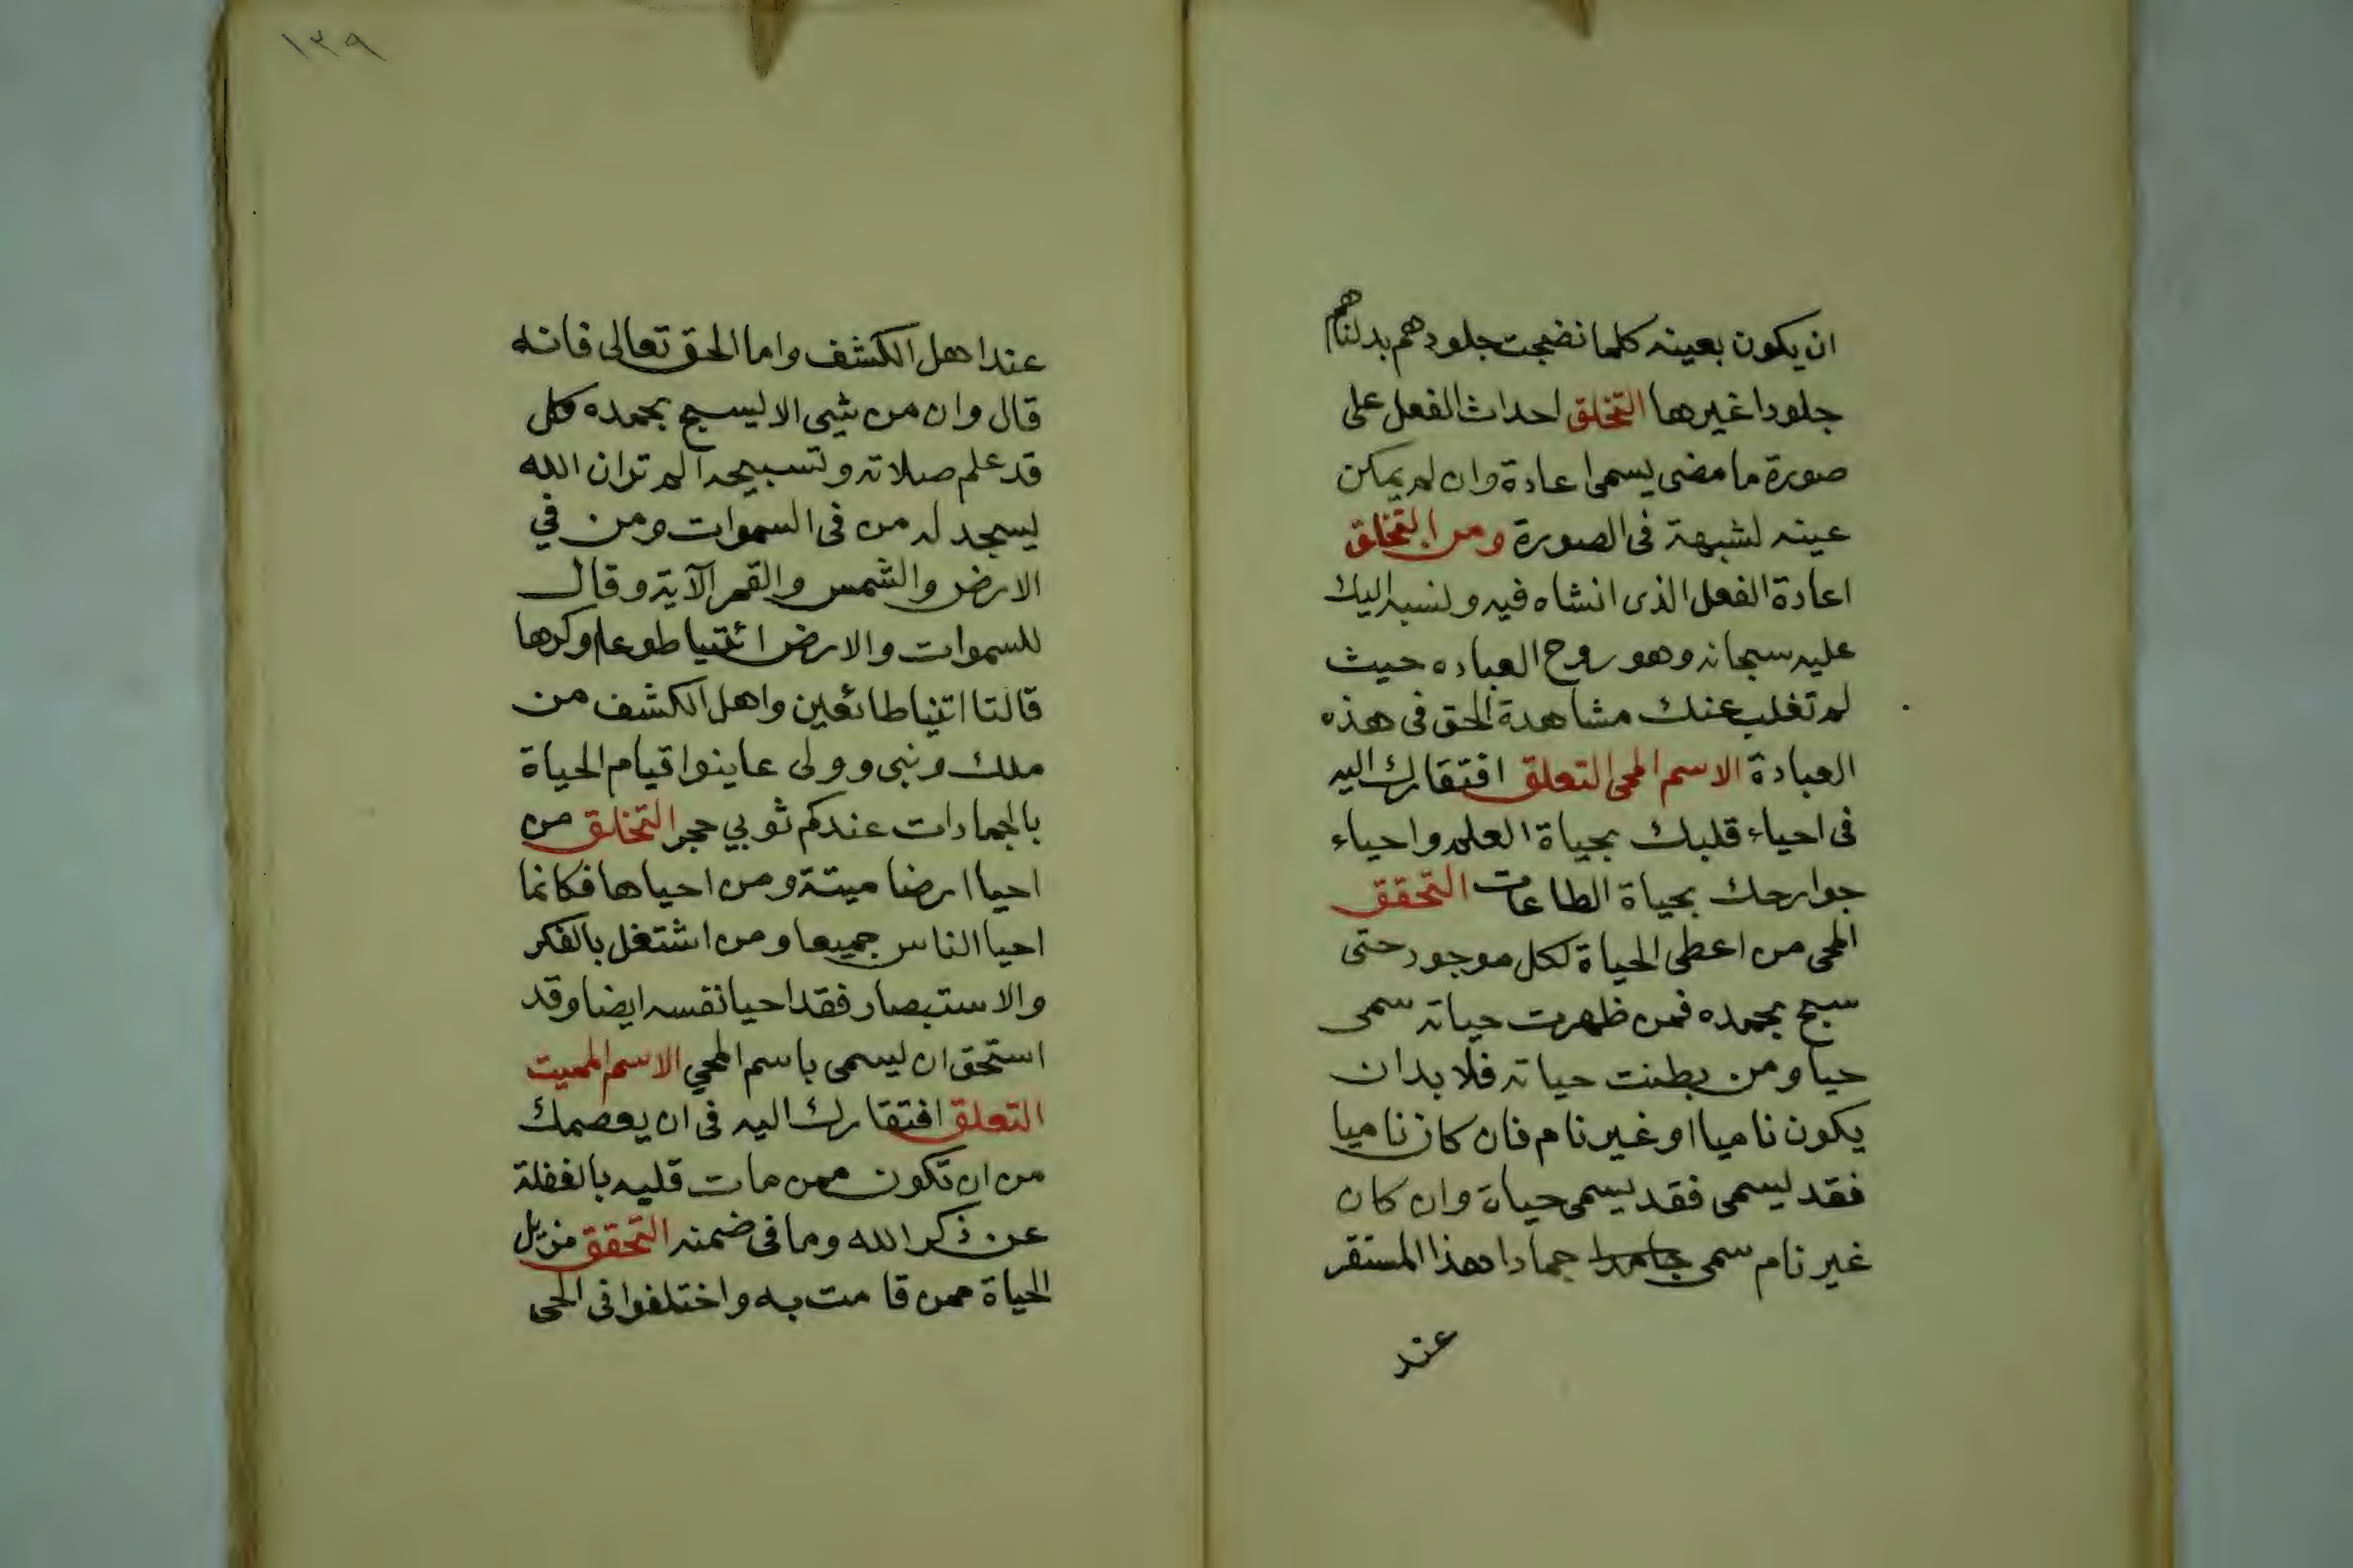 ان يكون بعينه كلما نضجت جلودهم بدلناهم
جلودا غيرها التخلق احداث الفعل على
صورة ما مضى يسمى اعادة وان لم يكن
عينه لشبهة فى الصورة ومن التخلق
اعادة الفعل الذى انشاه فيه ونسبه اليك
عليه سبحانه وهو روح العباده حيث
لم تغلب عنك مشاهدة الحق فى هذه
العبادة الاسم المحى التعلق افتقارك اليه
فى احياء قلبك بحياة العلم واحياء
جوارحك بحياة الطاعات التحقق
المحى من اعطى الحياة لكل موجود حتى
سبح بحمده فمن ظهرت حياته سمى
حيا ومن بطنت حياته فلا بد ان
يكون ناميا او غير نام فان كان ناميا
فقد يسمى فقد يسمى حياة وان كان
غير نام سمى جامدا جمادا هذا المستقر
عند
١٣٩
عند اهل الكشف واما الحق تعالى فانه
قال وان من شيى الا يسبح بحمده كل
قد علم صلاته وتسبيحه الم تر ان الله
يسجد له من فى السموات ومن في
الارض والشمس والقمر الآية وقال
للسموات والارض ائتيا طوعا وكرها
قالتا اتينا طائعين واهل الكشف من
ملك ونبى وولى عاينوا قيام الحياة
بالجمادات عندكم ثوبي حجر التخلق من
احيا ارضا ميتة ومن احياها فكانما
احيا الناس جميعا ومن اشتغل بالفكر
والاستبصار فقد احيا نفسه ايضا وقد
استحق ان يسمى باسم المحي الاسم المميت
التعلق افتقارك اليه فى ان يعصمك
من ان تكون ممن مات قلبه بالغفلة
عن ذكر الله وما فى ضمنه التحقق مزيل
الحياة ممن قامت به واختلفوا فى الحى